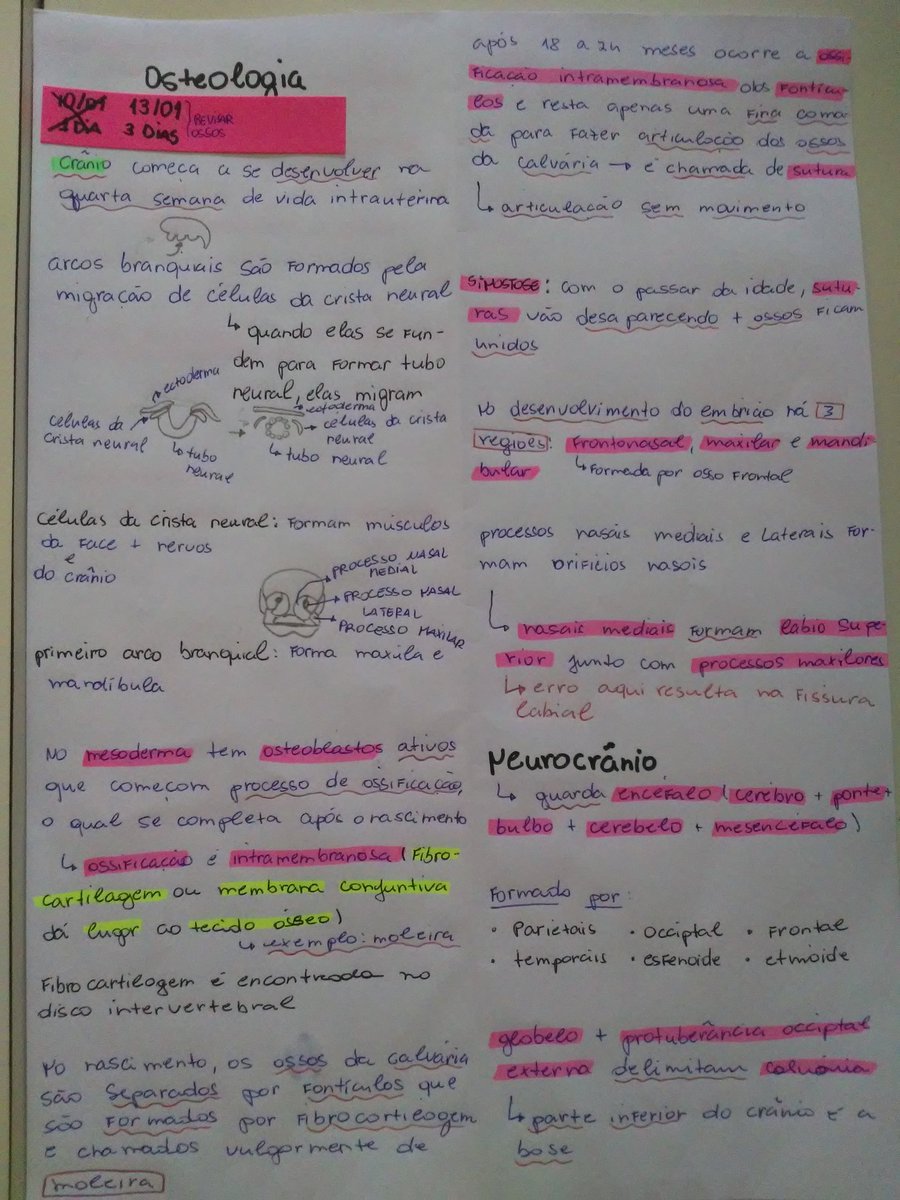 Osteologia
10/01 13/01 REVISAR
1 DIA 3 DIAS OSSOS
Crânio começa a se desenvolver na
quarta semana de vida intrauterina
arcos branquiais são formados pela
migração de células da crista neural
↳ quando elas se fun-
dem para formar tubo
neural, elas migram
ectoderma
células da
crista neural
↳ tubo
neural
ectoderma
células da crista
neural
↳ tubo neural
células da crista neural: formam músculos
da face + nervos
e
do crânio
PROCESSO NASAL
MEDIAL
PROCESSO NASAL
LATERAL
PROCESSO MAXILAR
primeiro arco branquial: forma maxila e
mandíbula
No mesoderma tem osteoblastos ativos
que começam processo de ossificação,
o qual se completa após o nascimento
↳ ossificação é intramembranosa (fibro-
cartilagem ou membrana conjuntiva
dá lugar ao tecido ósseo)
↳ exemplo: moleira
Fibrocartilagem é encontrada no
disco intervertebral
No nascimento, os ossos da calvária
são separados por fontículos que
são formados por fibrocartilagem
e chamados vulgarmente de
moleira
após 18 a 24 meses ocorre a ossi-
ficação intramembranosa dos fontícu-
los e resta apenas uma fina cama-
da para fazer articulação dos ossos
da calvária → é chamada de sutura
↳ articulação sem movimento
SINOSTOSE: com o passar da idade, sutu-
ras vão desaparecendo + ossos ficam
unidos
No desenvolvimento do embrião há 3
regiões: frontonasal, maxilar e mandi-
bular ↳ formada por osso frontal
processos nasais mediais e laterais for-
mam orifícios nasais
↳ nasais mediais formam lábio supe-
rior junto com processos maxilares
↳ erro aqui resulta na fissura
labial
Neurocrânio
↳ guarda encéfalo (cérebro + ponte +
bulbo + cerebelo + mesencéfalo)
Formado por:
• Parietais • Occiptal • Frontal
• temporais • esfenoide • etmoide
glabelo + protuberância occiptal
externa delimitam calvária
↳ parte inferior do crânio é a
base